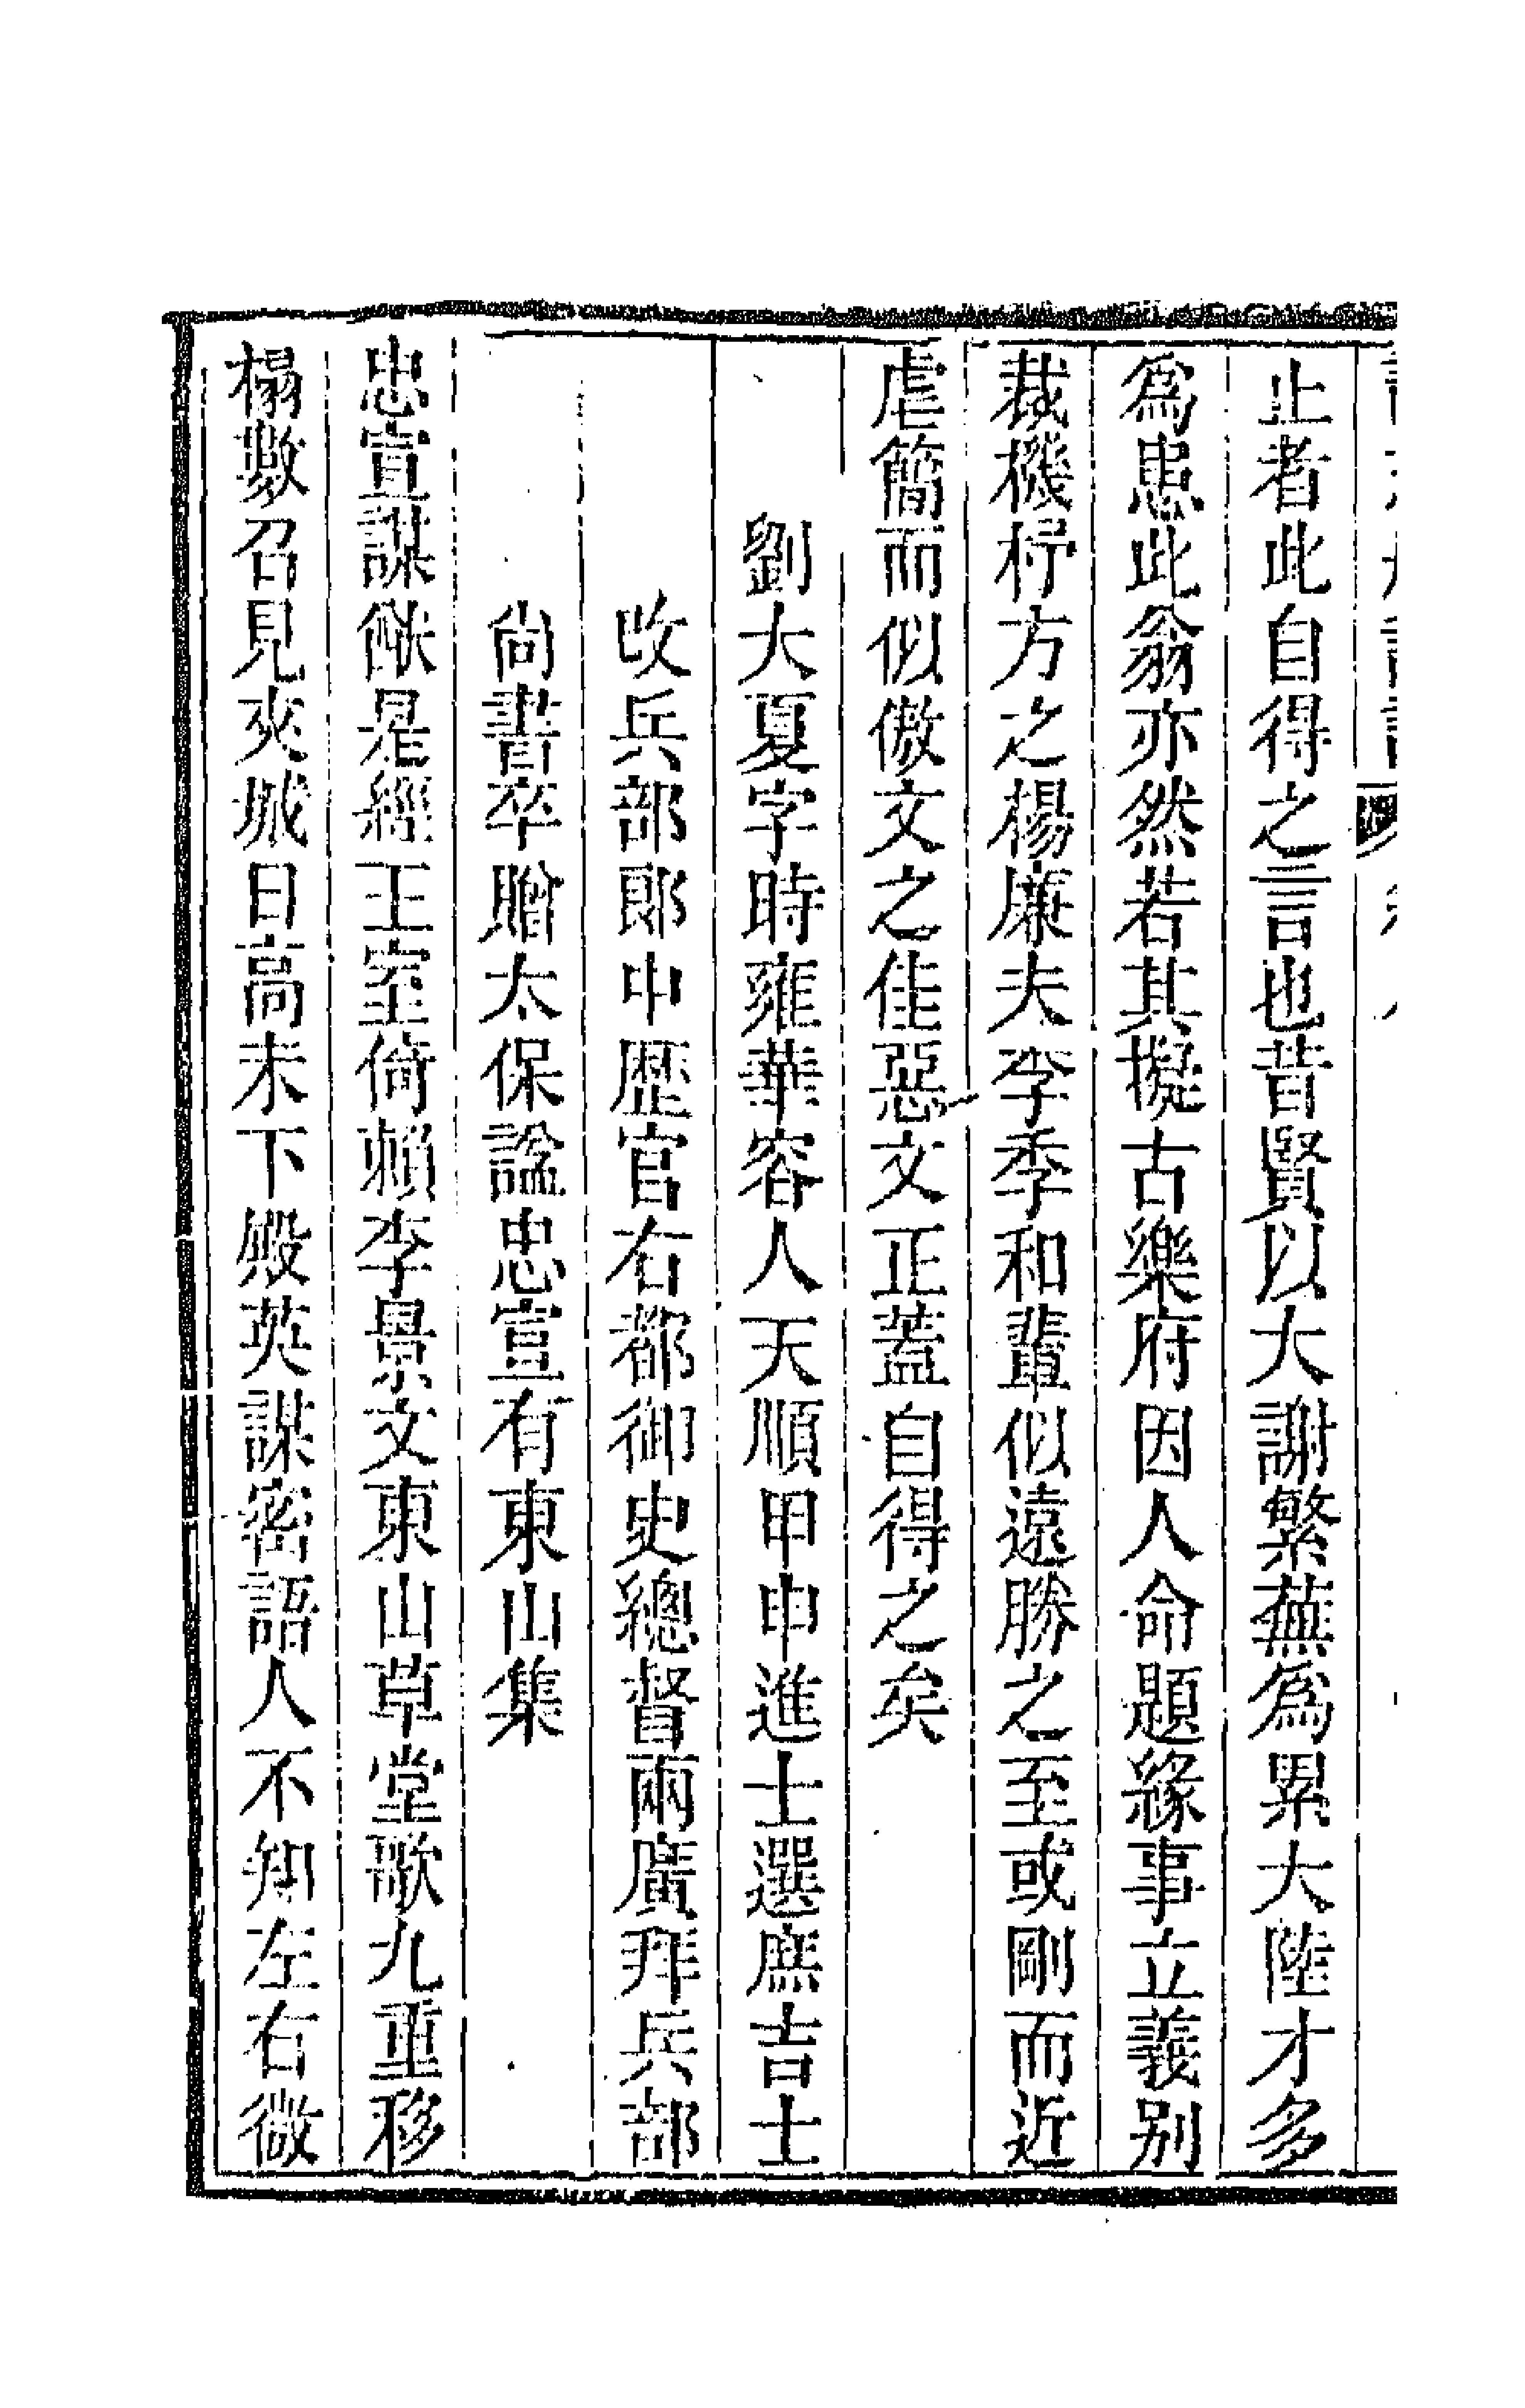 止者此自得之言也昔賢以大謝繁蕪爲累大陸才多
爲患此翁亦然若其擬古樂府因人命題緣事立義别
裁機杼方之楊廉夫李季和輩似遠勝之至或剛而近
虐簡而似傲文之佳惡文正蓋自得之矣
劉大夏字時雍華容人天順甲申進士選庶吉士
改兵部郎中歷官右都御史總督兩廣拜兵部
尚書卒贈太保諡忠宣有東山集
忠宣謀猷是經王室倚賴李景文東山草堂歌九重移
榻數召見夾城日高未下殿英謀密語人不知左右微